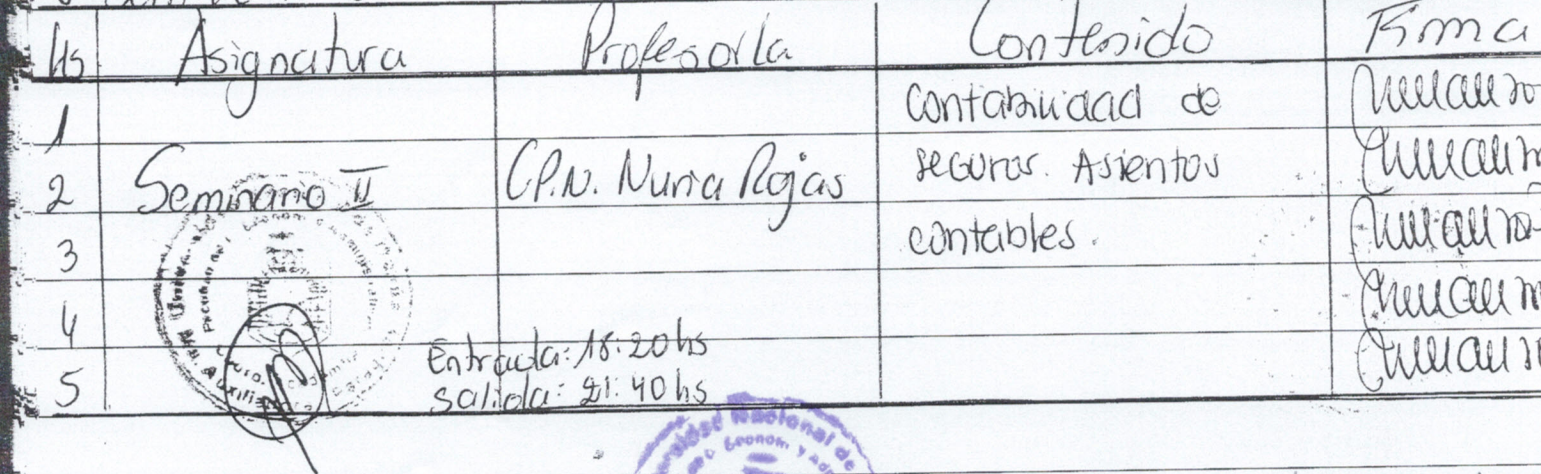 Hs Asignatura Profesor/a Contenido Firma
1 contabilidad de
2 Seminario II C.P.N. Nuria Rojas seguros. Asientos
3 contables.
4
Entrada: 18:20hs
5 Salida: 21:40hs
Nacional de
Econom y Adm